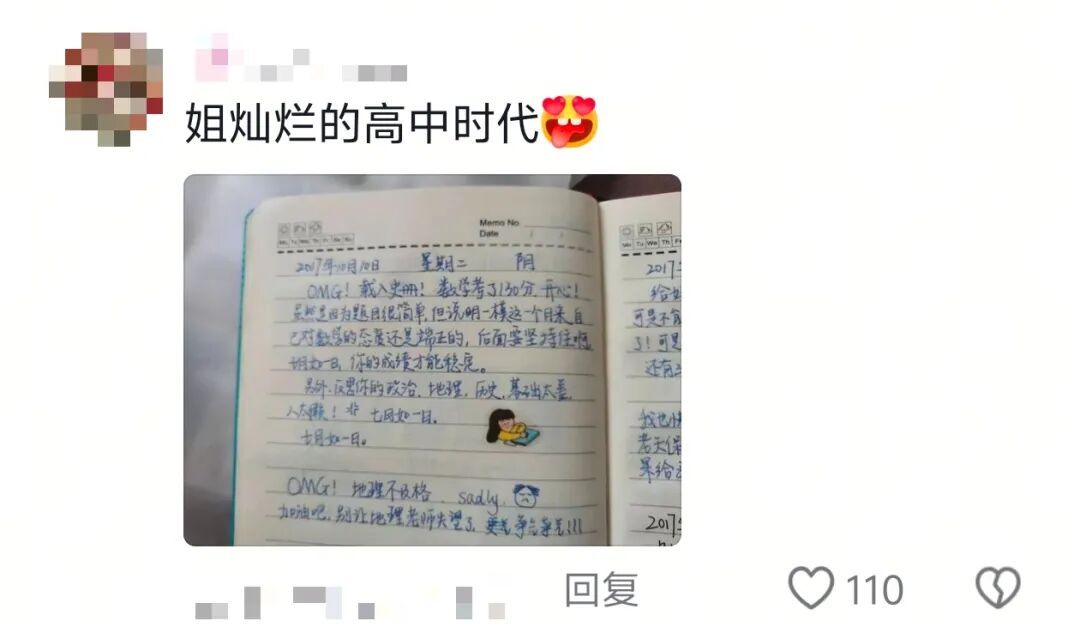 姐灿烂的高中时代
Memo No.
Date
Mo Tu We Th Fr Sa Su
2017年10月10日 星期二 阴
OMG！载入史册！数学考了130分，开心！
虽然是因为题目很简单，但说明一模这一个月来，自
己对数学的态度还是端正的，后面要坚持住啊。
如一日，你的成绩才能稳定。
另外，反思你的政治，地理，历史，基础太差，
人太懒！ 七月如一日。
七月如一日。
OMG！地理不及格，sadly，
加油吧，别让地理老师失望了， 争气争气!!!
Mo Tu We Th F
2017
给
可是不能
了！可是
还有
我也
考
果给
2017
回复
110